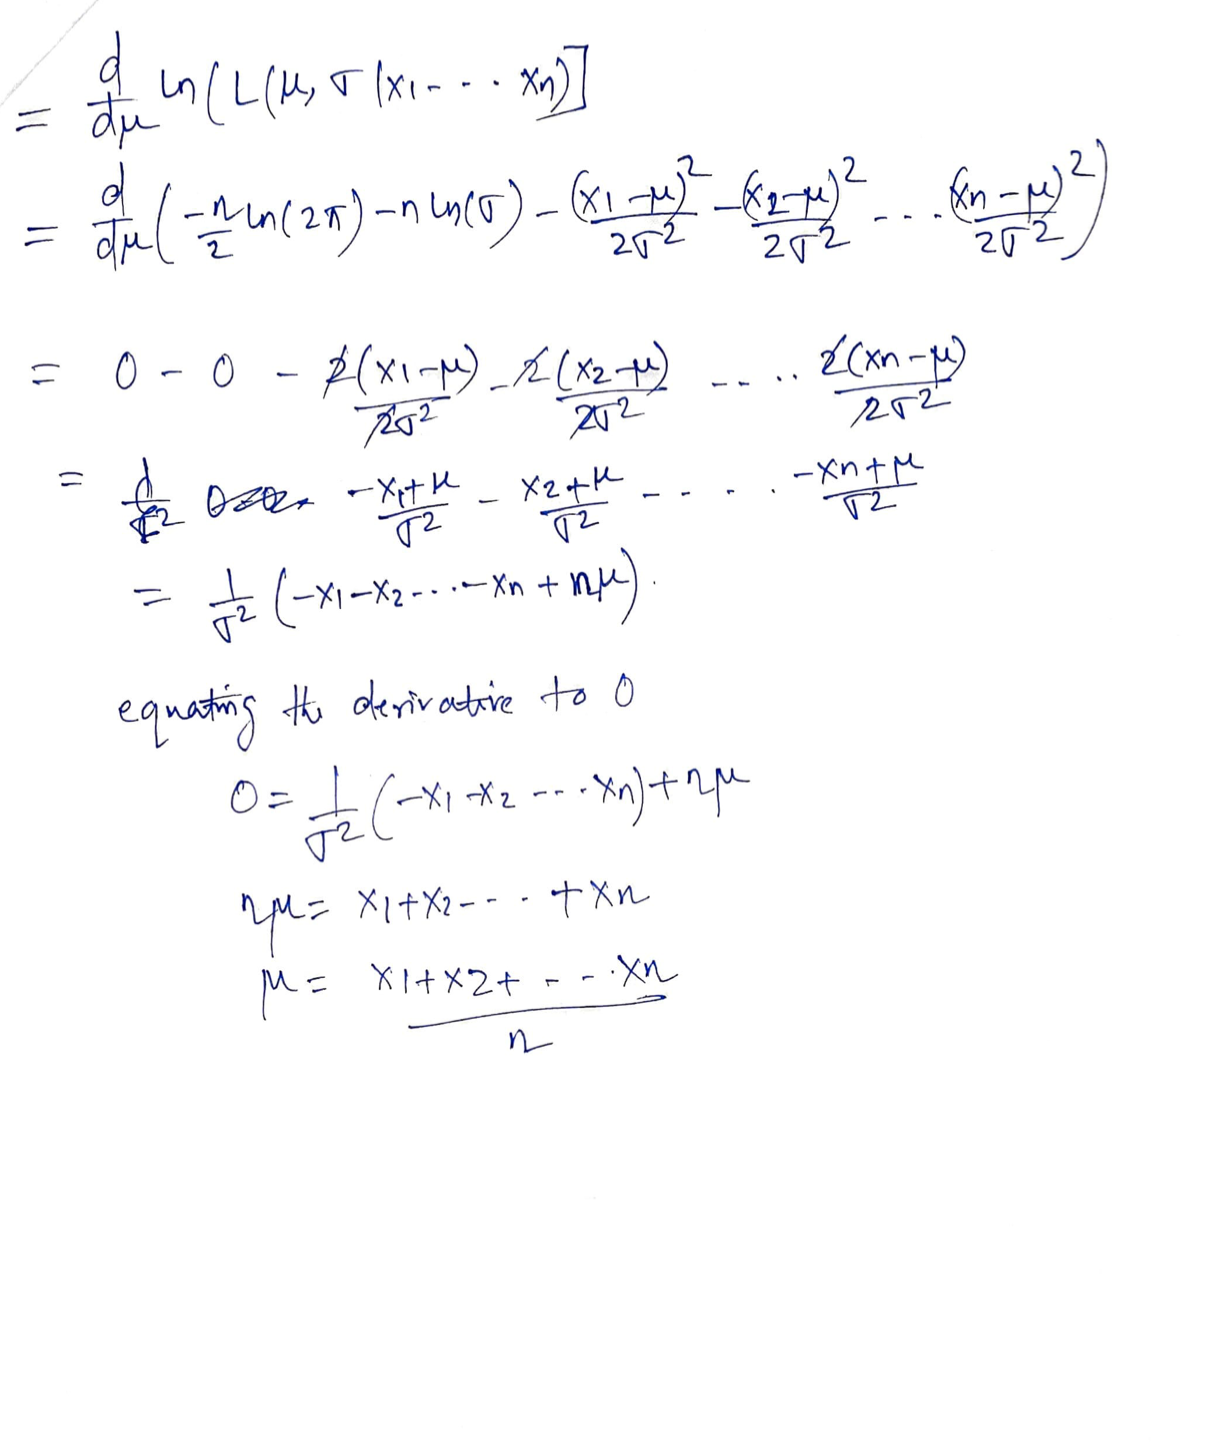 = d/dμ ln(L(μ, σ |x1 - - - xn)]
= d/dμ (-n/2 ln(2π) - n ln(σ) - (x1-μ)²/2σ² - (x2-μ)²/2σ² - - - (xn-μ)²/2σ²)
= 0 - 0 - 2(x1-μ)/2σ² - 2(x2-μ)/2σ² - - - .. 2(xn-μ)/2σ²
= -x1+μ/σ² - x2+μ/σ² - - . . . -xn+μ/σ²
= 1/σ² (-x1-x2-...-xn + nμ).
equating the derivative to 0
0 = 1/σ² (-x1-x2 ---. xn)+nμ
nμ = x1+x2-- . +xn
μ = x1+x2+ - - . xn/n